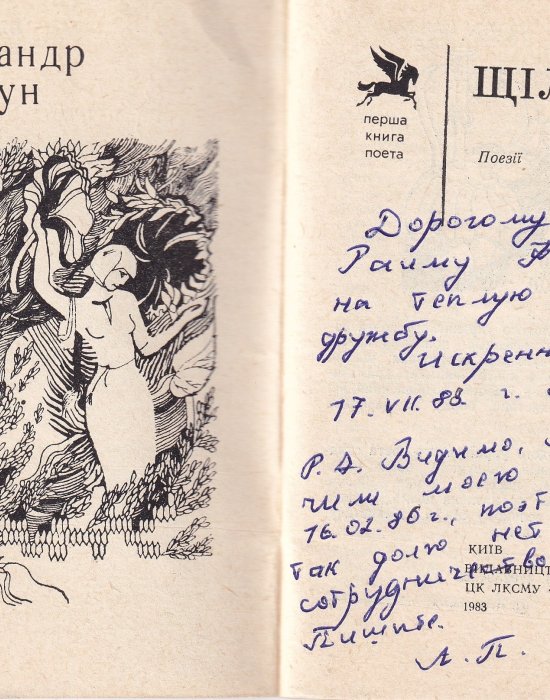 андр
ун
перша
книга
поета
ЩІЛ
Поезії
Дорогому
Раиму
на теплую
дружбу.
Искренн
17. VII. 88. г.
Р. А. Видимо,
чили моею
16.02.86 г., поэт
так долго нет
сотрудничество
Пишите.
А. П.
КИЇВ
ВИДАВНИЦТ
ЦК ЛКСМУ
1983